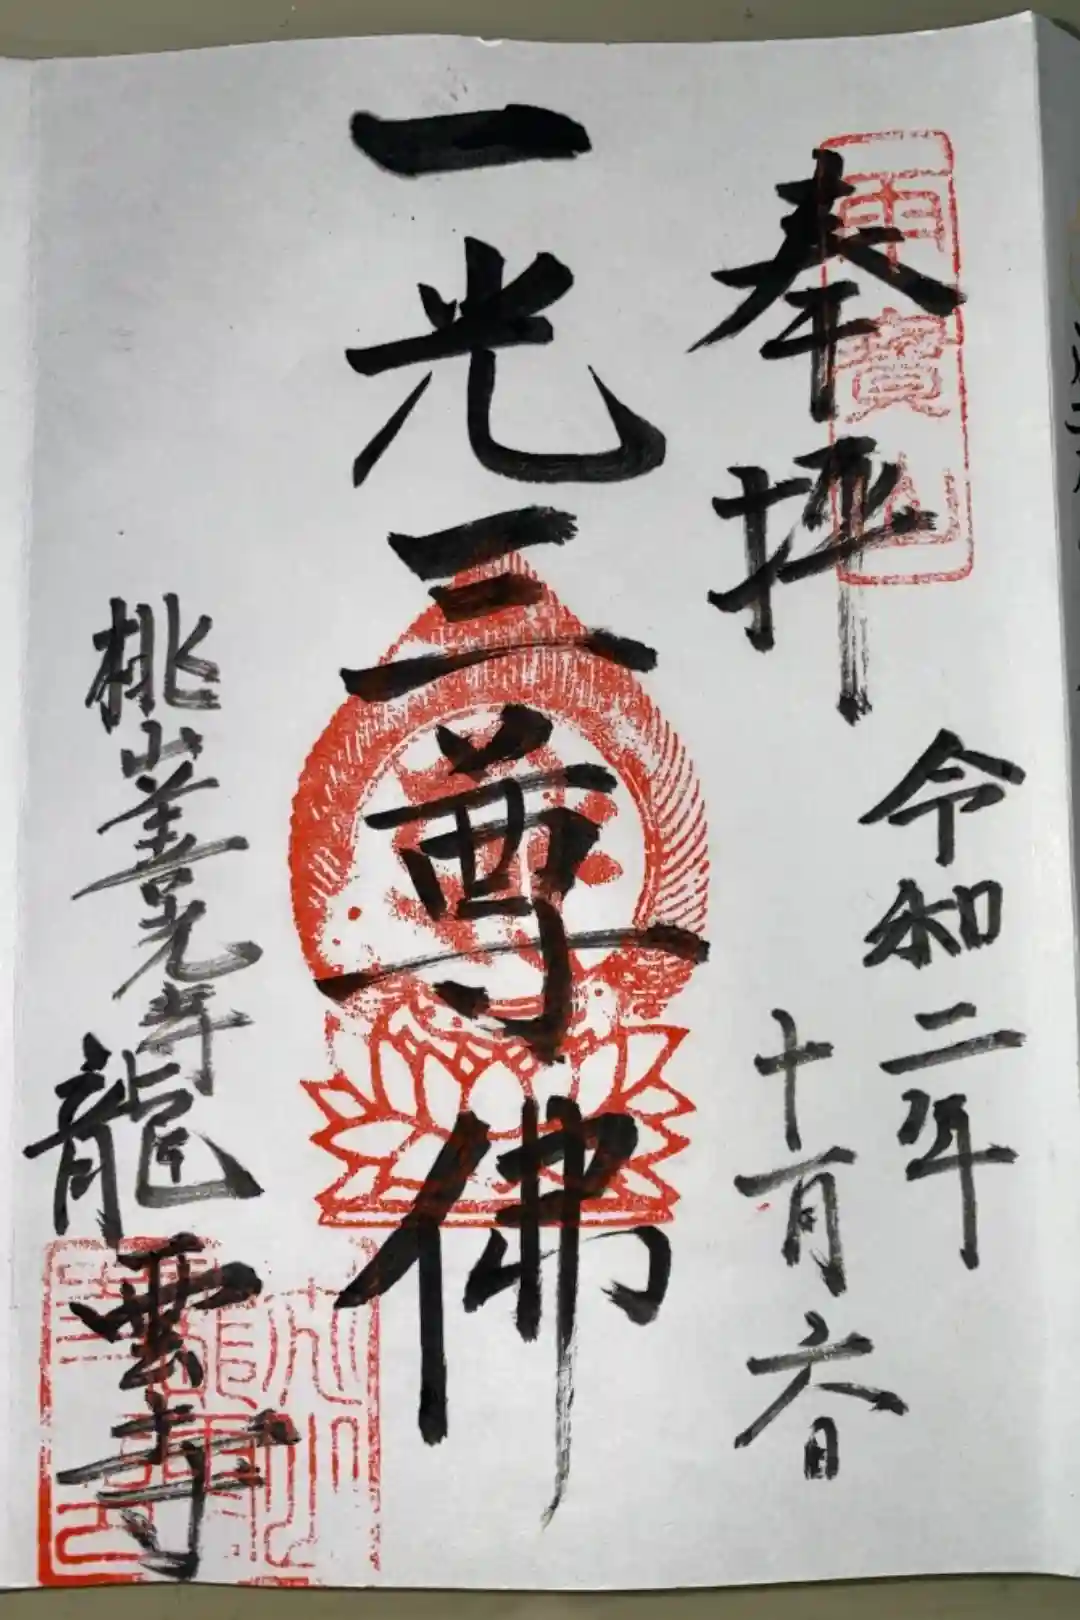 奉拝
令和二年
十月六日
一光三尊佛
桃山善光寺
龍雲寺